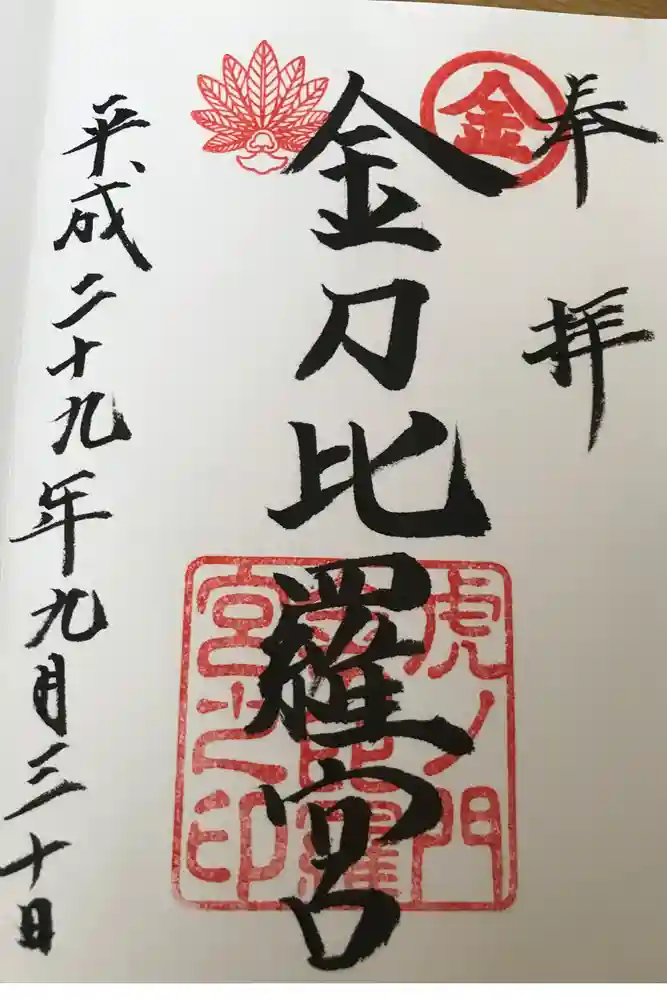 奉拝
金
金刀比羅宮
虎ノ門
金刀比羅
宮之印
平成二十九年九月三十日